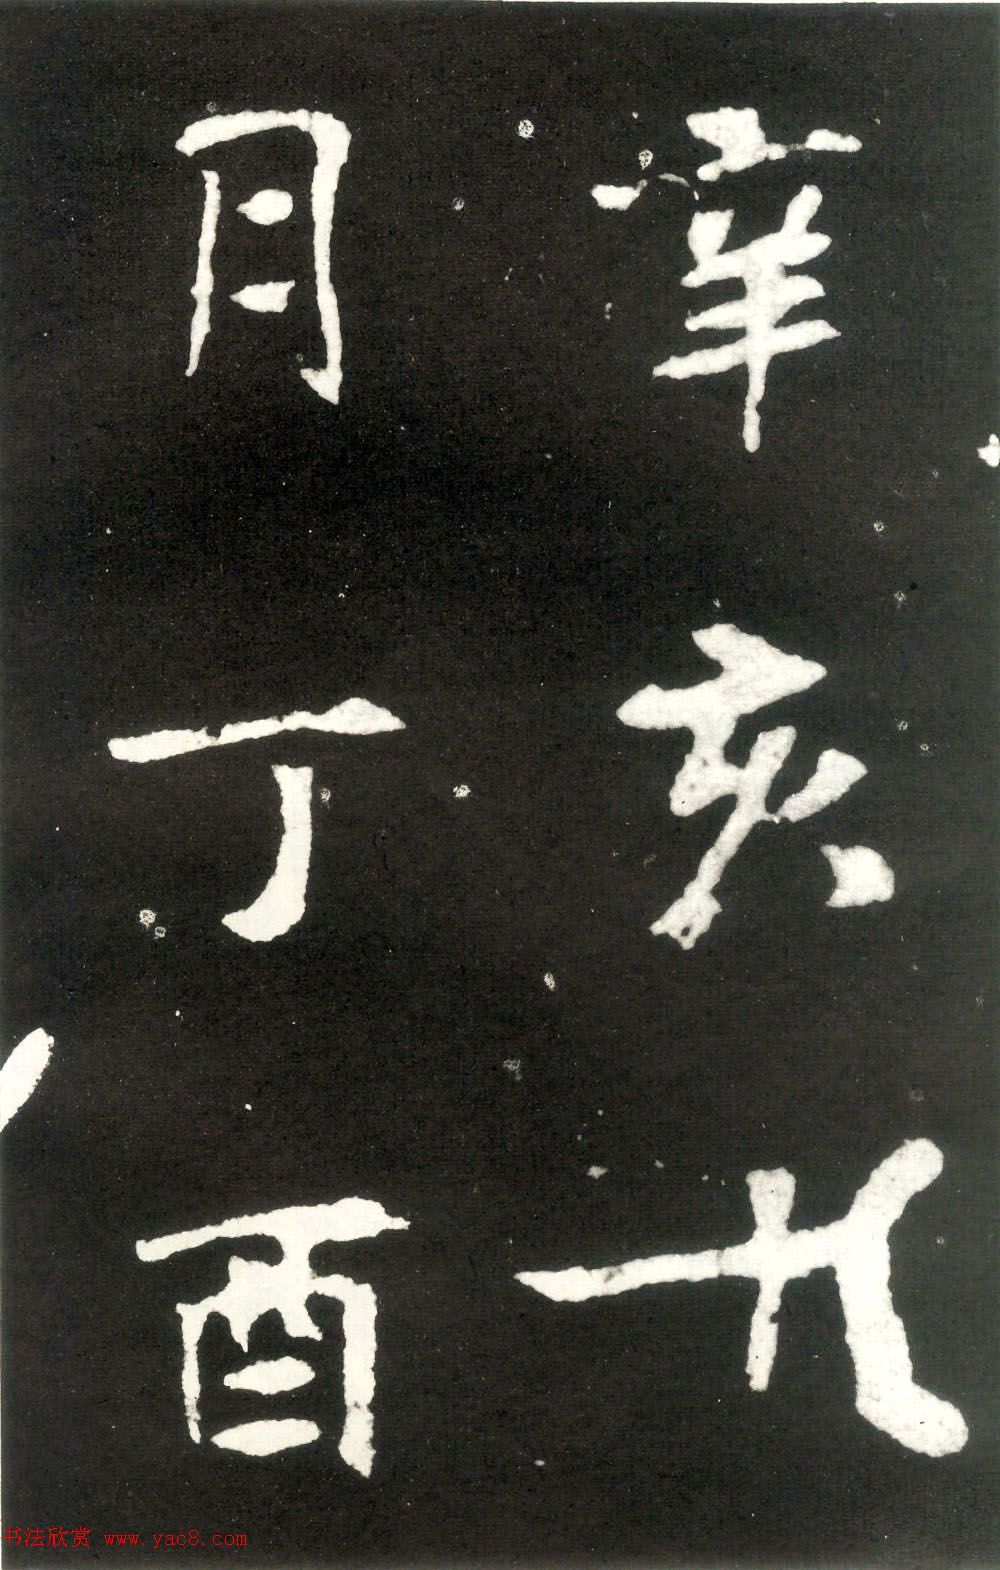 辛亥九
月丁酉
书法欣赏 www.yac8.com